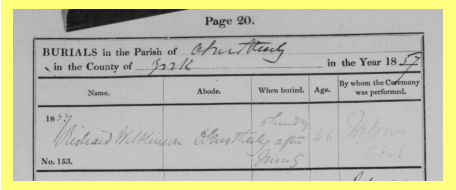 Page 20.
BURIALS in the Parish of Osmotherly
in the County of York in the Year 1857
Name. Abode. When buried. Age. By whom the Ceremony was performed.
1857
Richard Wilkinson Osmotherley after 46
No. 153.